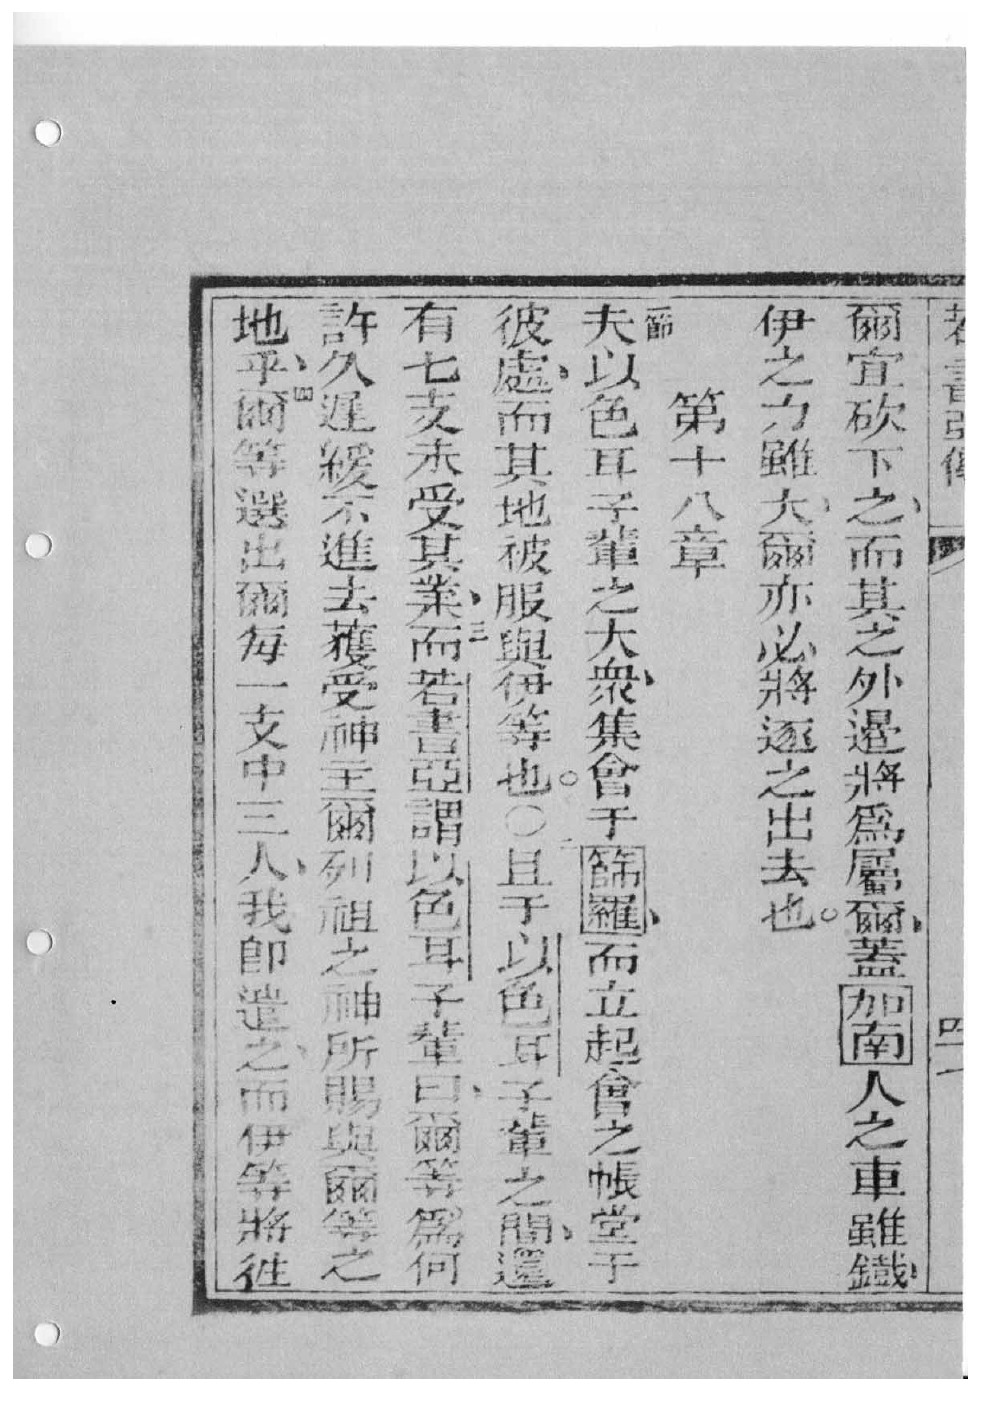 若書亞傳 四一
爾宜砍下之、而其之外邊將爲屬爾、蓋加南人之車雖鐵、
伊之力雖大、爾亦必將逐之出去也。
第十八章
一節夫以色耳子輩之大衆、集會于篩羅、而立起會之帳堂于
彼處、而其地被服與伊等也。○二且于以色耳子輩之間、還
有七支未受其業、三而若書亞謂以色耳子輩曰、爾等爲何
許久遲緩不進去獲受神主爾列祖之神所賜與爾等之
地乎、四爾等選出爾每一支中三人、我卽遣之、而伊等將徃